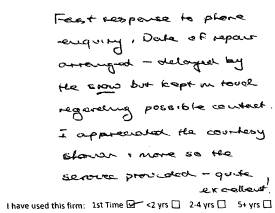 Fast response to phone
enquiry. Date of repair
arranged - delayed by
the snow but kept in touch
regarding possible contact.
I appreciated the courtesy
shown & more so the
service provided - quite
excellent!
I have used this firm: 1st Time ☑ <2 yrs ☐ 2-4 yrs ☐ 5+ yrs ☐